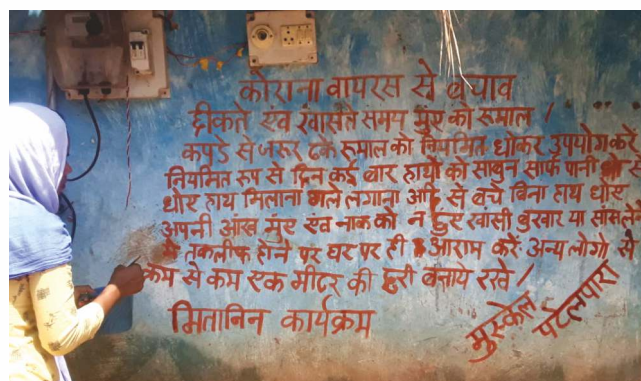 कोराना वायरस से बचाव
छीकते एंव खांसते समय मुंह को रूमाल / " "
कपडे से जरूर ढके रूमाल को नियमित धोकर उपयोग करे
नियमित रूप से दिन कई बार हाथों को साबुन साफ पानी से
धोए हाथ मिलाना गले लगाना आदि से बचे बिना हाथ धोए
अपनी आंख मुंह एंव नाक को न छुए खांसी बुखार या सांस लेने
मे तकलीफ होने पर घर पर ही आराम करें अन्य लोगो से
कम से कम एक मीटर की दुरी बनाये रखे /
मितानिन कार्यक्रम
मुस्केल
पटेलपारा